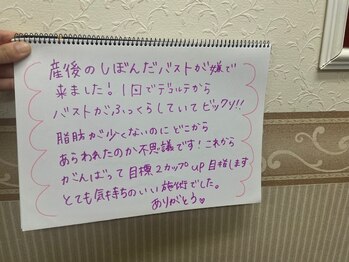 産後のしぼんだバストが嫌で
来ました！1回でデコルテから
バストがふっくらしていてビックリ!!
脂肪が少くないのにどこから
あらわれたのか不思議です！これから
がんばって目標2カップup目指します
とても気持ちのいい施術でした。
ありがとう♡